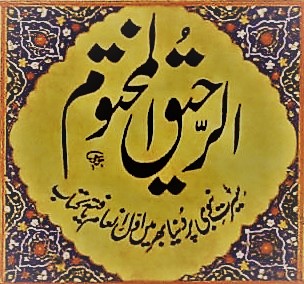 الرحیق المختوم
سیرت نبوی پر دنیا بھر میں اول انعام یافتہ کتاب